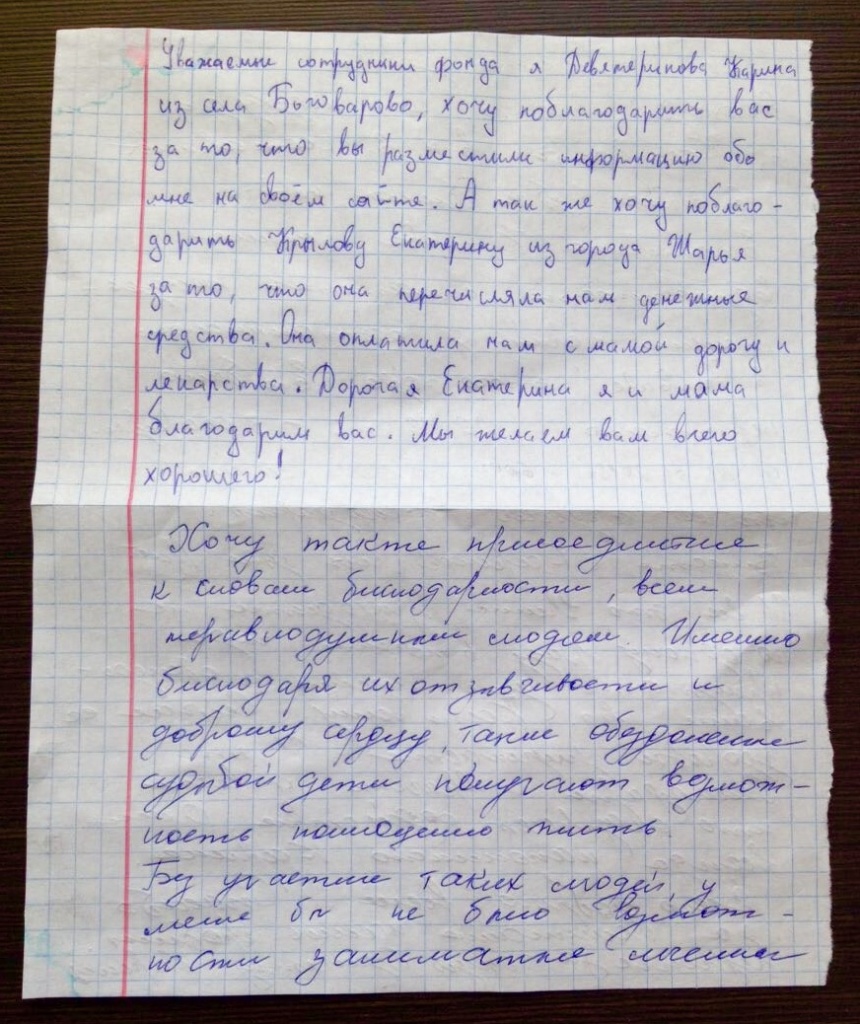 Уважаемые сотрудники фонда я Девятерикова Карина
из села Боговарово, хочу поблагодарить вас
за то, что вы разместили информацию обо
мне на своём сайте. А так же хочу поблаго-
дарить Крылову Екатерину из города Шарья
за то, что она перечисляла нам денежные
средства. Она оплатила нам с мамой дорогу и
лекарства. Дорогая Екатерина я и мама
благодарим вас. Мы желаем вам всего
хорошего!
Хочу также присоединится
к словам благодарности, всем
неравнодушным людям. Именно
благодаря их отзывчивости и
доброму сердцу, такие обездоленные
судьбой дети получают возмож-
ность полноценно жить.
Без участие таких людей, у
меня бы не было возмож-
ности заниматься лечением